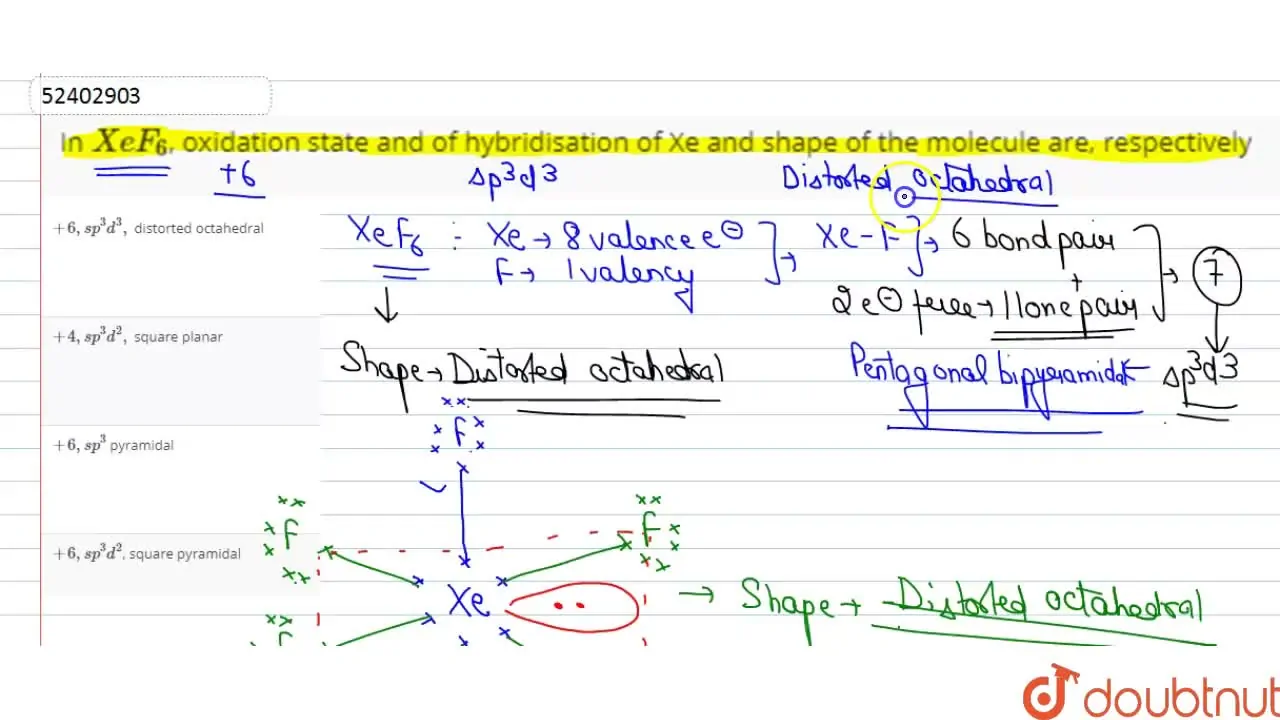 52402903
In XeF₆, oxidation state and of hybridisation of Xe and shape of the molecule are, respectively
+6 sp³d³ Distorted octahedral
+6, sp³d³, distorted octahedral
+4, sp³d², square planar
+6, sp³ pyramidal
+6, sp³d², square pyramidal
XeF₆ : Xe → 8 valence e⊖ ] → Xe-F ] → 6 bond pair
F → 1 valency
+
2e⊖ free → 1 lone pair ] → 7
Shape → Distorted octahedral
Pentagonal bipyramidal ← sp³d³
F
F
F
Xe
F
→ Shape → Distorted octahedral
doubtnut